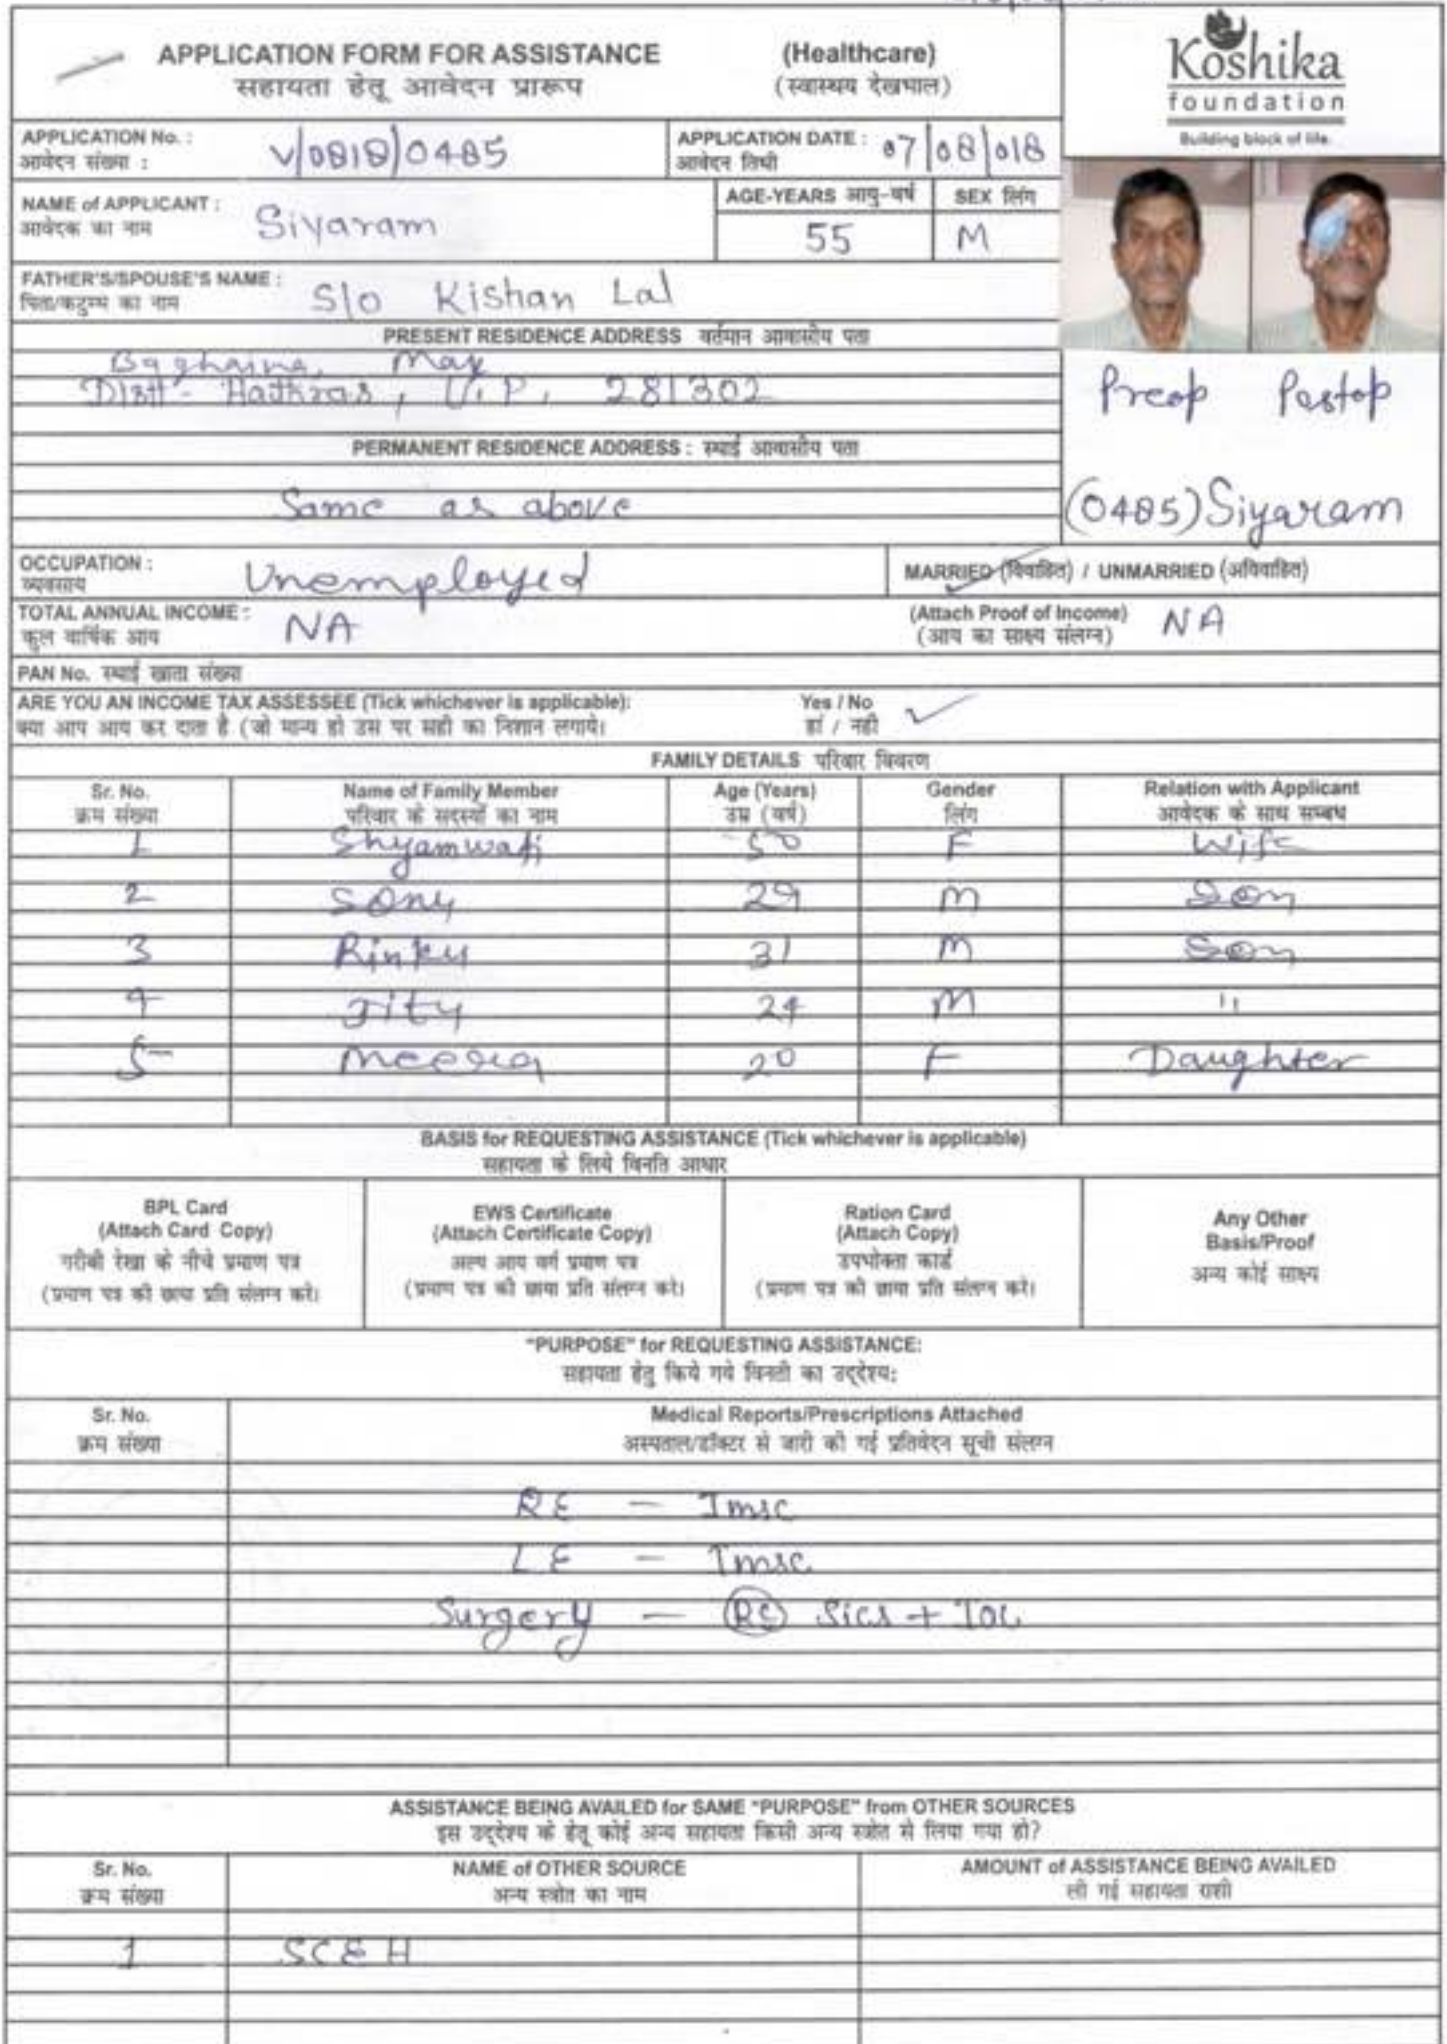 APPLICATION FORM FOR ASSISTANCE (Healthcare)
सहायता हेतू आवेदन प्रारूप (स्वास्थय देखभाल)
Koshika
foundation
Building block of life.
APPLICATION No. : V/0818/0485
आवेदन संख्या :
APPLICATION DATE : 07/08/018
आवेदन तिथी
NAME of APPLICANT : Siyaram
आवेदक का नाम
AGE-YEARS आयु-वर्ष SEX लिंग
55 M
FATHER'S/SPOUSE'S NAME : S/o Kishan Lal
पिता/कटुम्ब का नाम
PRESENT RESIDENCE ADDRESS वर्तमान आवासीय पता
Baghaina, May
Distt- Hathras, U.P, 281302
Preop Postop
PERMANENT RESIDENCE ADDRESS : स्थाई आवासीय पता
Same as above
(0485) Siyaram
OCCUPATION : Unemployed
व्यवसाय
MARRIED (विवाहित) / UNMARRIED (अविवाहित)
TOTAL ANNUAL INCOME : NA
कुल वार्षिक आय
(Attach Proof of Income) NA
(आय का साक्ष्य संलग्न)
PAN No. स्थाई खाता संख्या
ARE YOU AN INCOME TAX ASSESSEE (Tick whichever is applicable): Yes / No ✓
क्या आप आय कर दाता है (जो मान्य हो उस पर सही का निशान लगाये। हां / नही
FAMILY DETAILS परिवार विवरण
Sr. No. Name of Family Member Age (Years) Gender Relation with Applicant
क्रम संख्या परिवार के सदस्यों का नाम उम्र (वर्ष) लिंग आवेदक के साथ सम्बध
1 Shyamwati 50 F Wife
2 Sony 29 M Son
3 Rinku 31 M Son
4 Jity 24 M "
5 Meera 20 F Daughter
BASIS for REQUESTING ASSISTANCE (Tick whichever is applicable)
सहायता के लिये विनति आधार
BPL Card
(Attach Card Copy)
गरीबी रेखा के नीचे प्रमाण पत्र
(प्रमाण पत्र की छाया प्रति संलग्न करे।
EWS Certificate
(Attach Certificate Copy)
अल्प आय वर्ग प्रमाण पत्र
(प्रमाण पत्र की छाया प्रति संलग्न करे।
Ration Card
(Attach Copy)
उपभोक्ता कार्ड
(प्रमाण पत्र की छाया प्रति संलग्न करे।
Any Other
Basis/Proof
अन्य कोई साक्ष्य
"PURPOSE" for REQUESTING ASSISTANCE:
सहायता हेतु किये गये विनती का उद्देश्य:
Sr. No. Medical Reports/Prescriptions Attached
क्रम संख्या अस्पताल/डॉक्टर से जारी की गई प्रतिवेदन सूची संलग्न
RE - Imsc
LE - Imsc
Surgery - (RE) Sics + IOL
ASSISTANCE BEING AVAILED for SAME "PURPOSE" from OTHER SOURCES
इस उद्देश्य के हेतू कोई अन्य सहायता किसी अन्य स्त्रोत से लिया गया हो?
Sr. No. NAME of OTHER SOURCE AMOUNT of ASSISTANCE BEING AVAILED
क्रम संख्या अन्य स्त्रोत का नाम ली गई सहायता राशी
1 SCEH